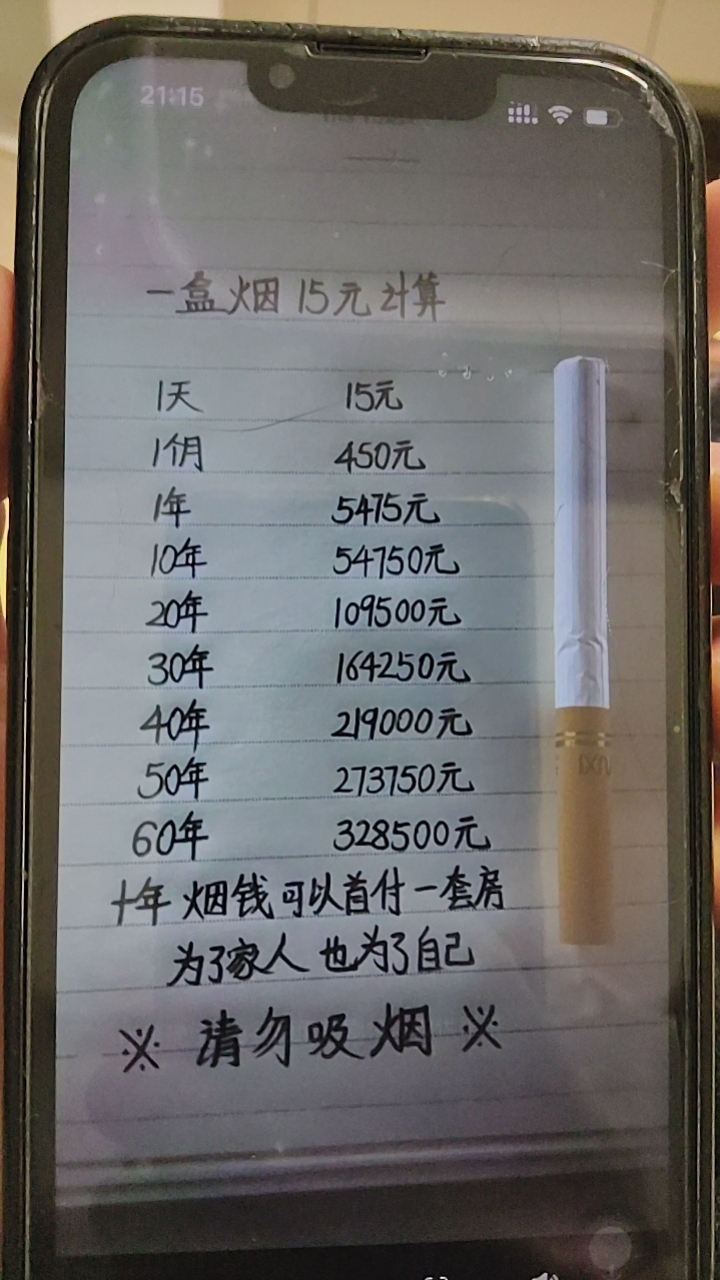 21:15
一盒烟 15元计算
1天 15元
1个月 450元
1年 5475元
10年 54750元
20年 109500元
30年 164250元
40年 219000元
50年 273750元
60年 328500元
十年 烟钱可以首付一套房
为了家人 也为了自己
※ 请勿吸烟 ※